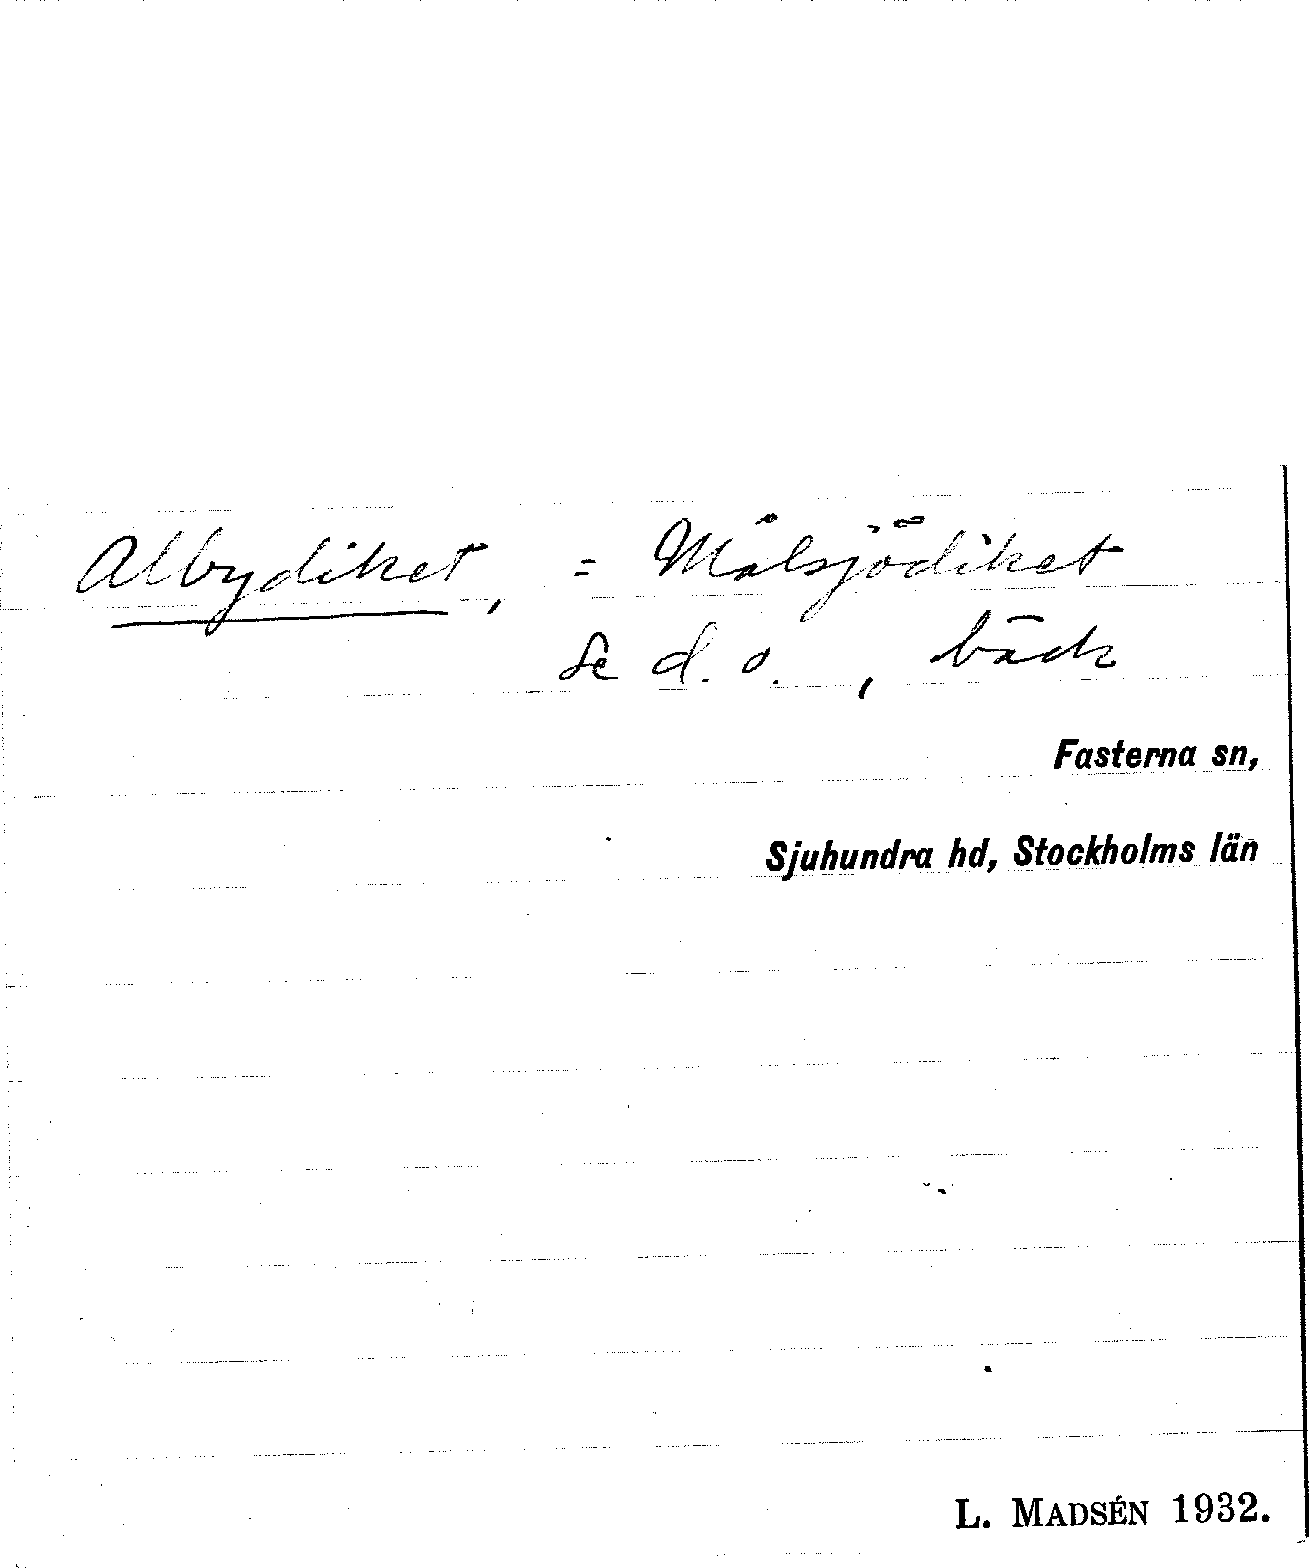 Albydiket, = Målsjödiket
se d. o. , bäck
Fasterna sn,
Sjuhundra hd, Stockholms län
L. MADSÉN 1932.